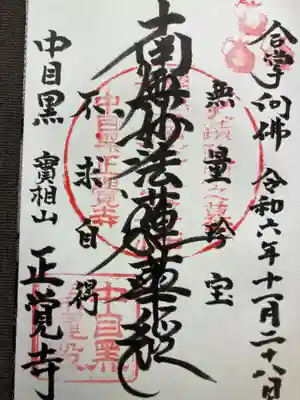 合掌向佛 令和六年十一月二十八日
無量珍宝
南無妙法蓮華経
不求自得
中目黒 實相山 正覚寺
中目黒 正覺寺
中目黑